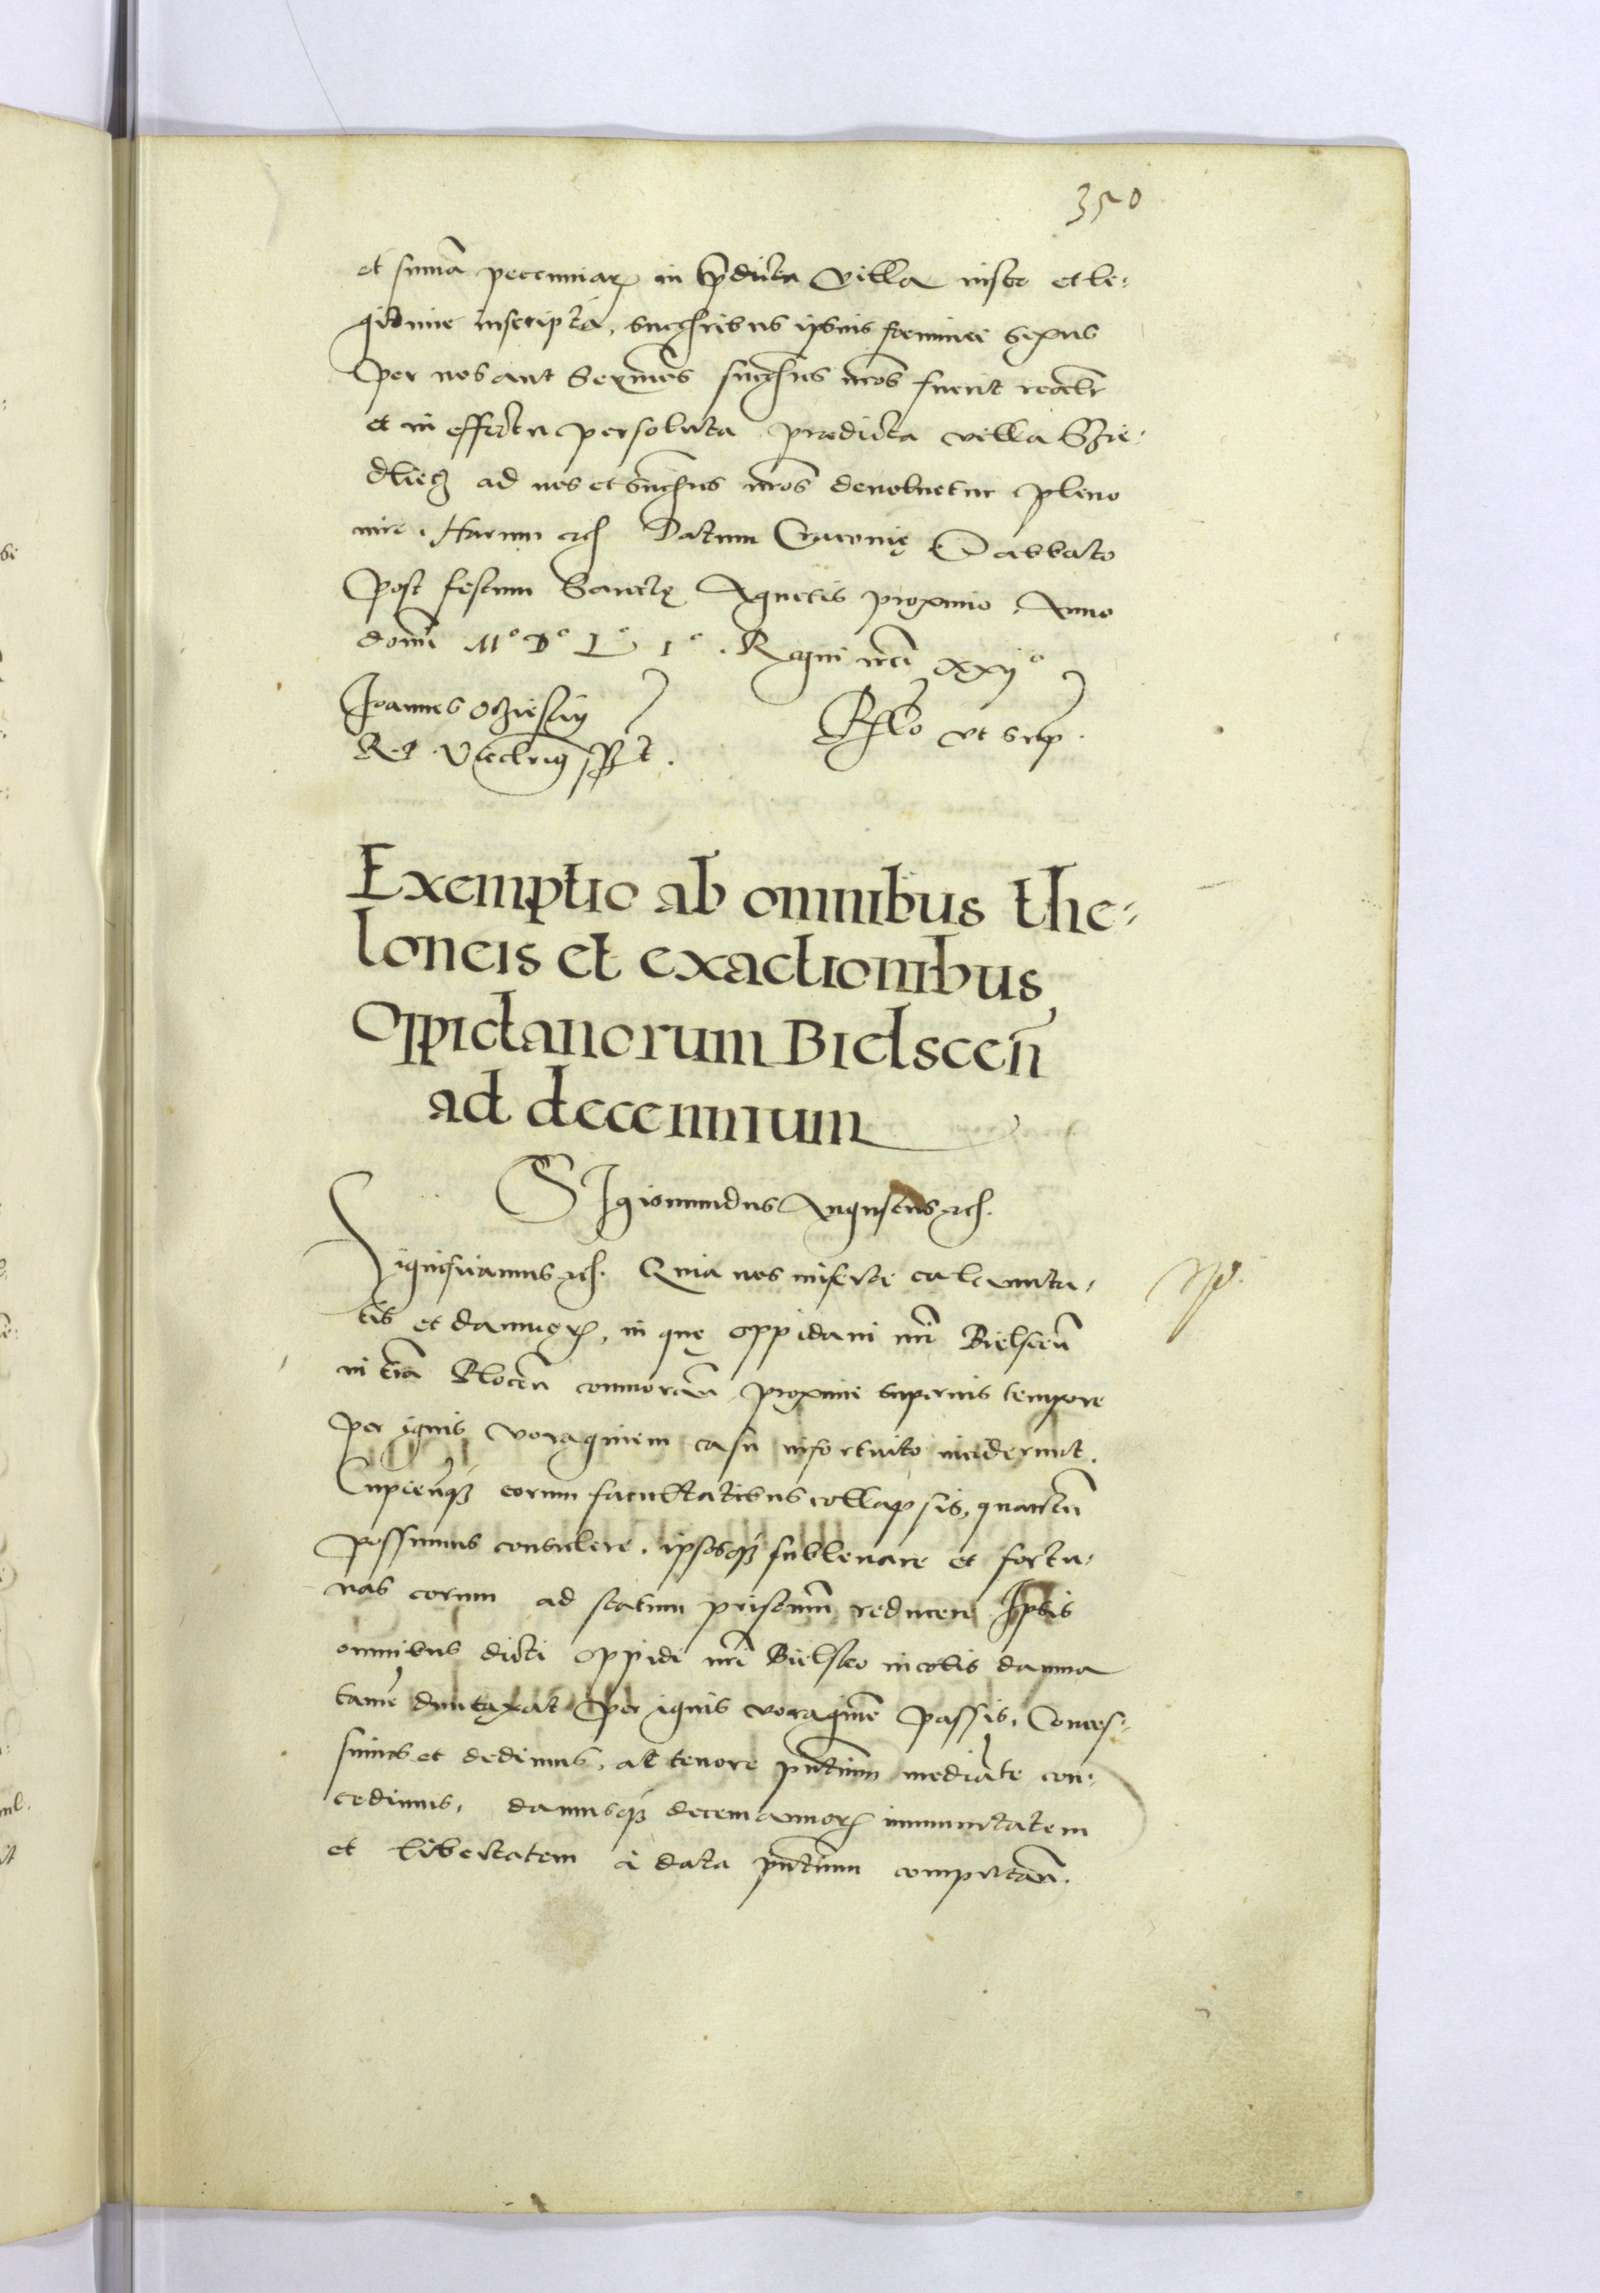 350
et sumā peccuniaꝝ in p̄dicta villa iuste et le-
gitime inscriptā, succ̄ribus ipsius fœminei sexus
per nos aut Serm̄os succ̄res nr̄os fuerit realr̄
et in effectu persoluta prædicta villa Szie-
dliecz ad nos et succ̄res nr̄os deuoluetur pleno
iure. Harum etc̄ Datum Cracovię Sabbato
post festum Sanctę Agnetis proximo. Anno
domī Mᵒ Dᵒ Lᵒ Iᵒ. Regni nr̄i xxijᵒ
Joannes Oczieski
R. P. Vicecancꝰ sspt.
R̄elo vt supͣ.
Exemptio ab omnibus the-
loneis et exactionibus
Oppidanorum Bielsceñ
ad decennium
SIgismundus Augustus etc̄.
Significamus etc̄. Quia nos misertæ calamita-
tis et damnoꝝ, in quę oppidani nr̄i Bielsceñ
in tr̄a Plocen̄ commoran̄ proxime superius tempore
per ignis voraginem casu infortuito inciderunt.
Cupien̄qꝫ eorum facultatibus collapsis, quantū
possumus consulere, ipsosqꝫ subleuare et fortu-
nas eorum ad statum pristinū reducere Ipsis
omnibus dicti oppidi nr̄i Bielsko incolis damna
tamē duntaxat per ignis voraginē passis, Conces-
simus et dedimus, ac tenore pn̄tium mediāte con-
cedimus, damusqꝫ decem annoꝝ immunitatem
et libertatem à data pn̄tium computan̄.